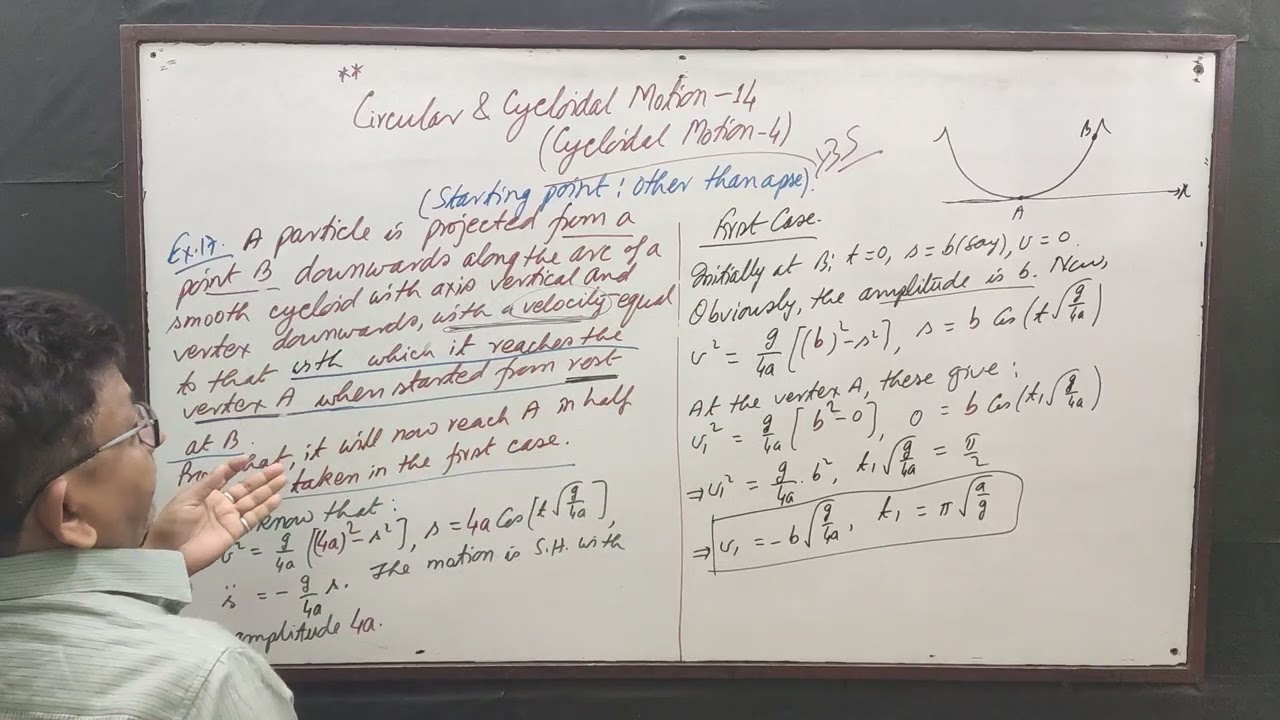 **
Circular & Cycloidal Motion-14
(Cycloidal Motion-4)
(Starting point: other than apse).
Ex.17. A particle is projected from a
point B downwards along the arc of a
smooth cycloid with axis vertical and
vertex downwards, with a velocity equal
to that with which it reaches the
vertex A when started from rest
at B.
that, it will now reach A in half
taken in the first case.
know that:
v² = g/4a [(4a)² - s²], s = 4a Cos[t√(g/4a)],
s̈ = - g/4a s. The motion is S.H. with
amplitude 4a.
First Case.
Initially at B; t=0, s=b(say), v=0.
Obviously, the amplitude is b. Now,
v² = g/4a [(b)² - s²], s = b Cos(t√(g/4a))
At the vertex A, these give:
v₁² = g/4a [b² - 0], 0 = b Cos(t₁√(g/4a))
⇒ v₁² = g/4a . b², t₁√(g/4a) = π/2
⇒ v₁ = -b√(g/4a), t₁ = π√(a/g)
B
A
x